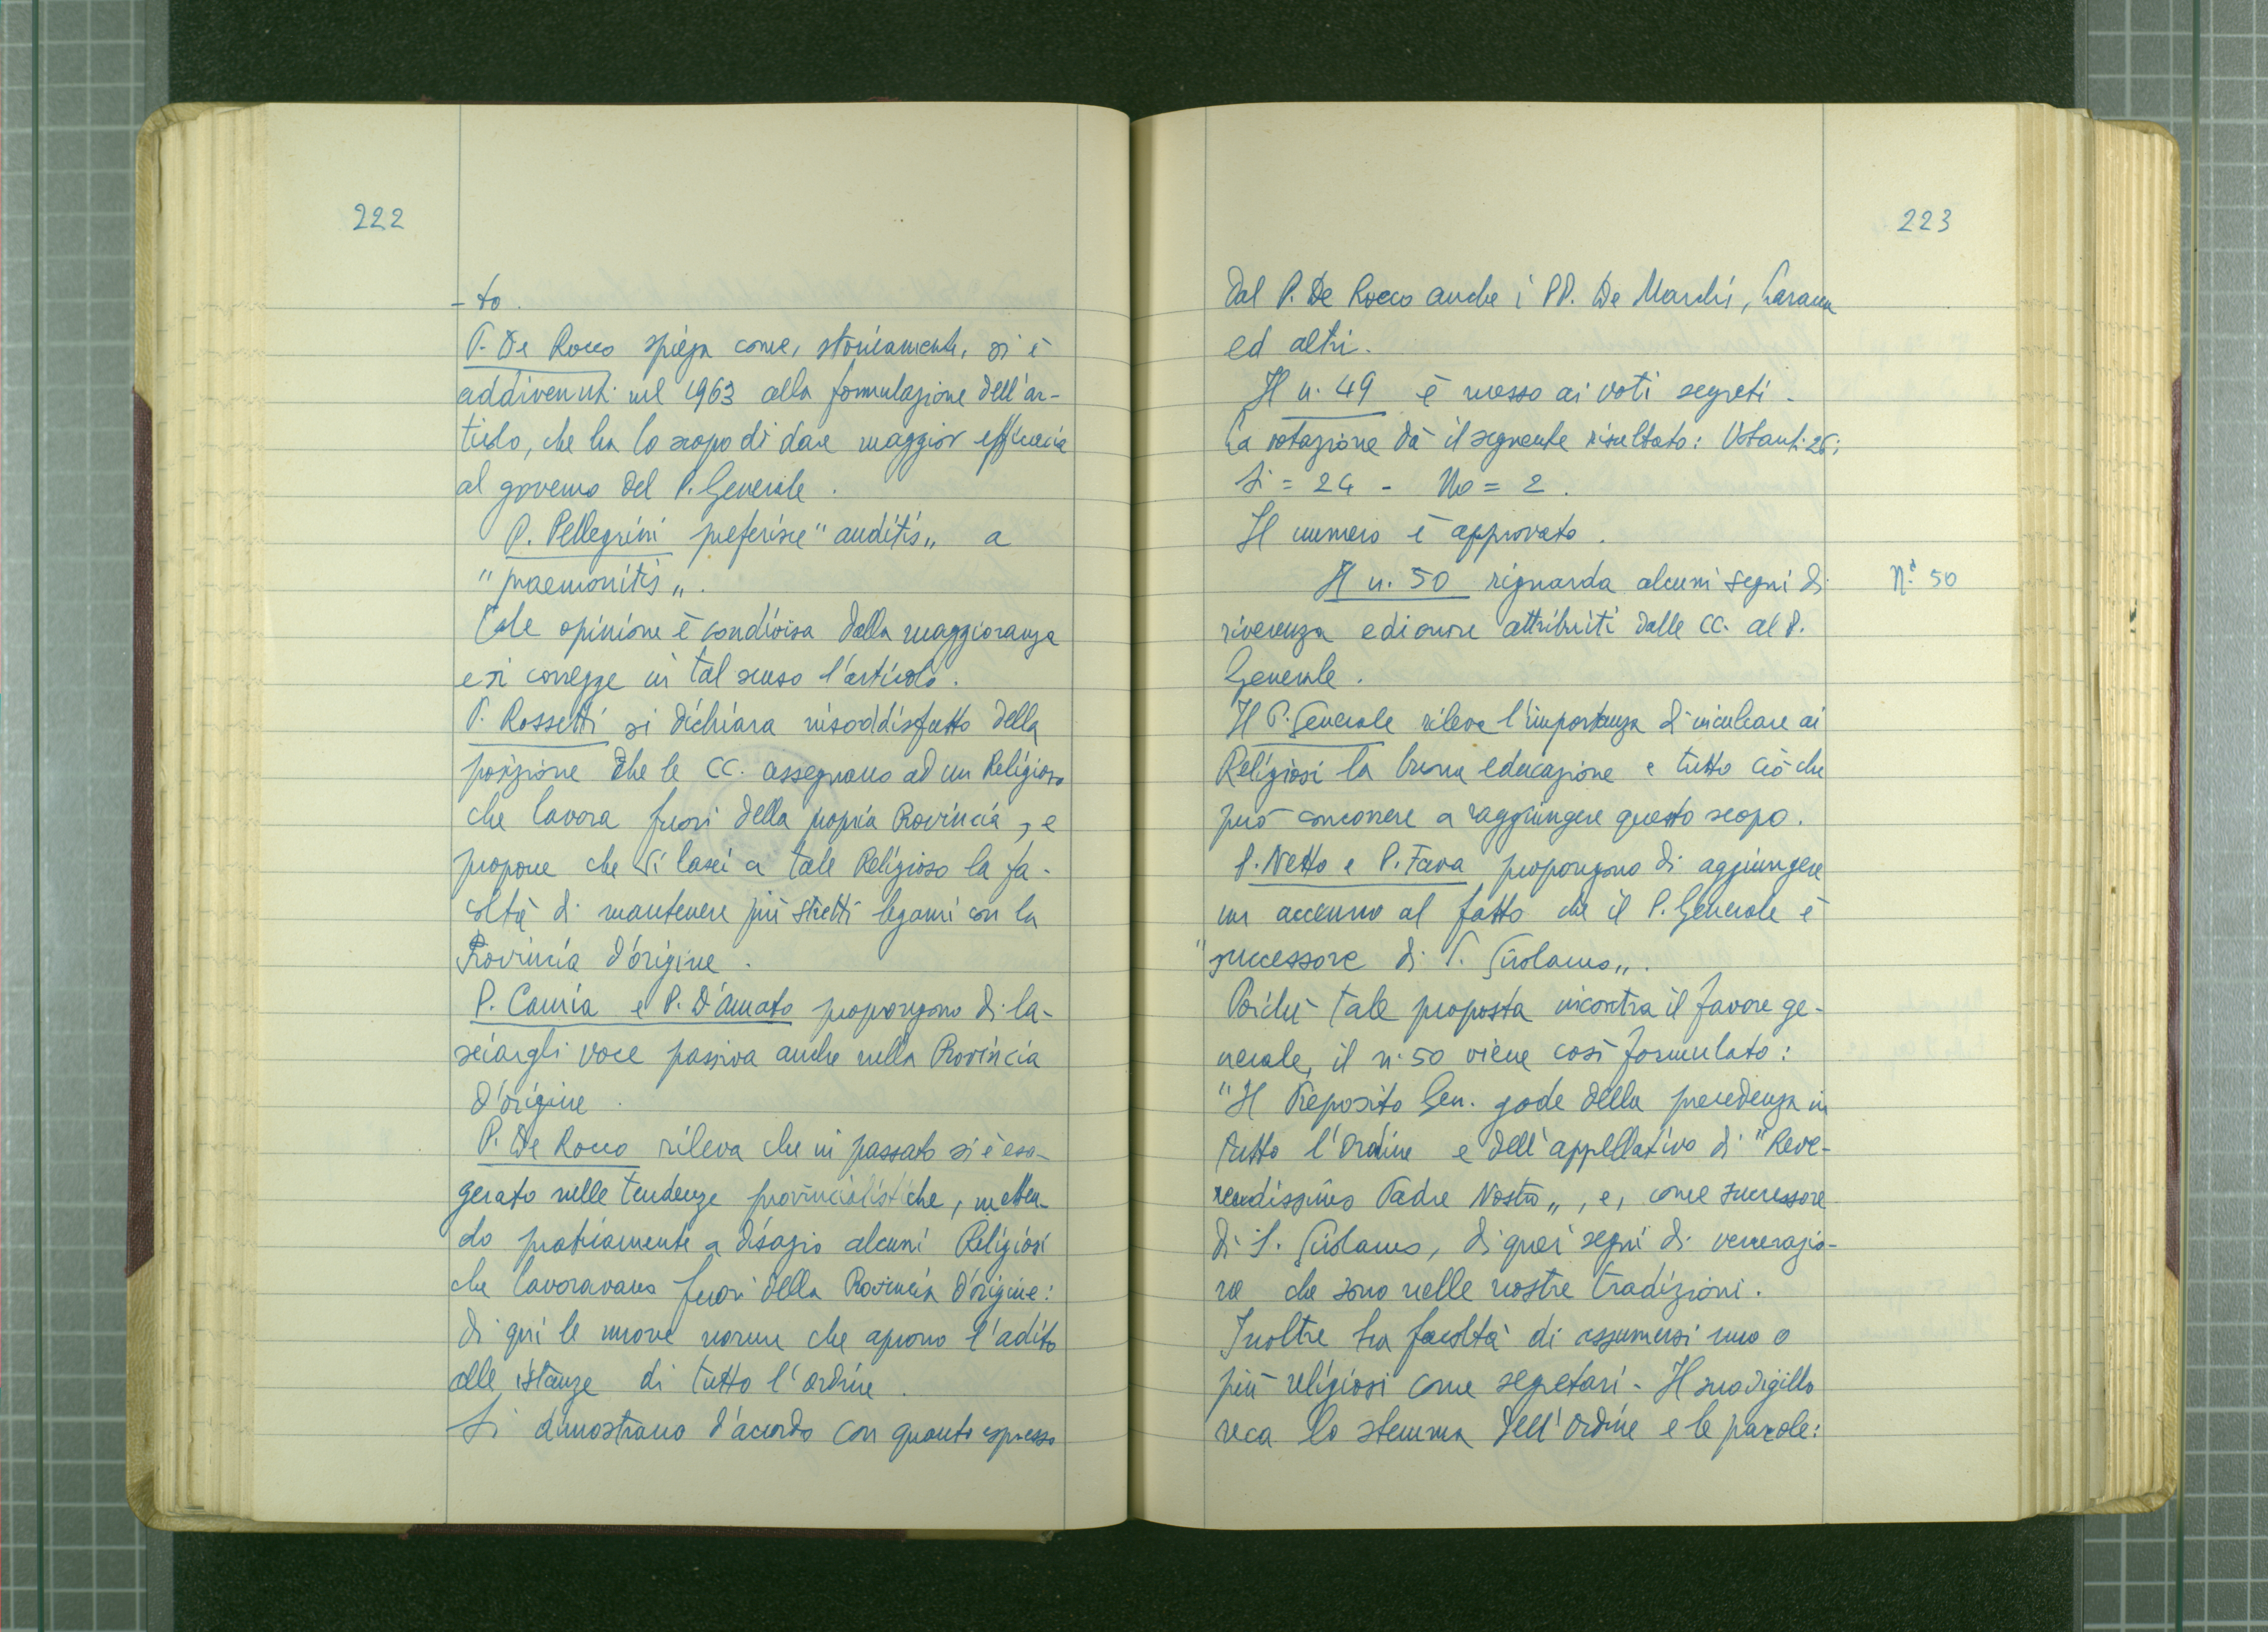 222
-to.
P. De Rocco spiega come, storicamente, si è
addivenuti nel 1963 alla formulazione dell'ar-
ticolo, che ha lo scopo di dare maggior efficacia
al governo del P. Generale.
P. Pellegrini preferisce "auditis„ a
"praemonitis„.
Tale opinione è condivisa dalla maggioranza
e si corregge in tal senso l'articolo.
P. Rossetti si dichiara insoddisfatto della
posizione che le CC. assegnano ad un Religioso
che lavora fuori della propria Provincia, e
propone che si lasci a tale Religioso la fa-
coltà di mantenere più stretti legami con la
Provincia d'origine.
P. Camia e P. D'Amato propongono di la-
sciargli voce passiva anche nella Provincia
d'origine.
P. De Rocco rileva che in passato si è esa-
gerato nelle tendenze provincialistiche, metten-
do praticamente a disagio alcuni Religiosi
che lavoravano fuori della Provincia d'origine:
di qui le nuove norme che aprono l'adito
alle istanze di tutto l'ordine.
Si dimostrano d'accordo con quanto espresso
223
dal P. De Rocco anche i PP. De Marchi,
ed altri.
Il n. 49 è messo ai voti segreti.
La votazione dà il seguente risultato: Votanti 26;
Si = 24 - No = 2.
Il numero è approvato.
Il n. 50 riguarda alcuni segni di
N.° 50
riverenza ed onore attribuiti dalle CC. al P.
Generale.
Il P. Generale rileva l'importanza di inculcare ai
Religiosi la buona educazione e tutto ciò che
può concorrere a raggiungere questo scopo.
P. Netto e P. Fava propongono di aggiungere
un accenno al fatto che il P. Generale è
"successore di S. Girolamo„.
Poichè tale proposta incontra il favore ge-
nerale, il n. 50 viene così formulato:
"Il Preposito Gen. gode della precedenza in
tutto l'Ordine e dell'appellativo di "Reve-
rendissimo Padre Nostro„, e, come successore
di S. Girolamo, di quei segni di venerazio-
ne che sono nelle nostre tradizioni.
Inoltre ha facoltà di assumersi uno o
più religiosi come segretari - Il suo sigillo
reca lo stemma dell'Ordine e le parole: